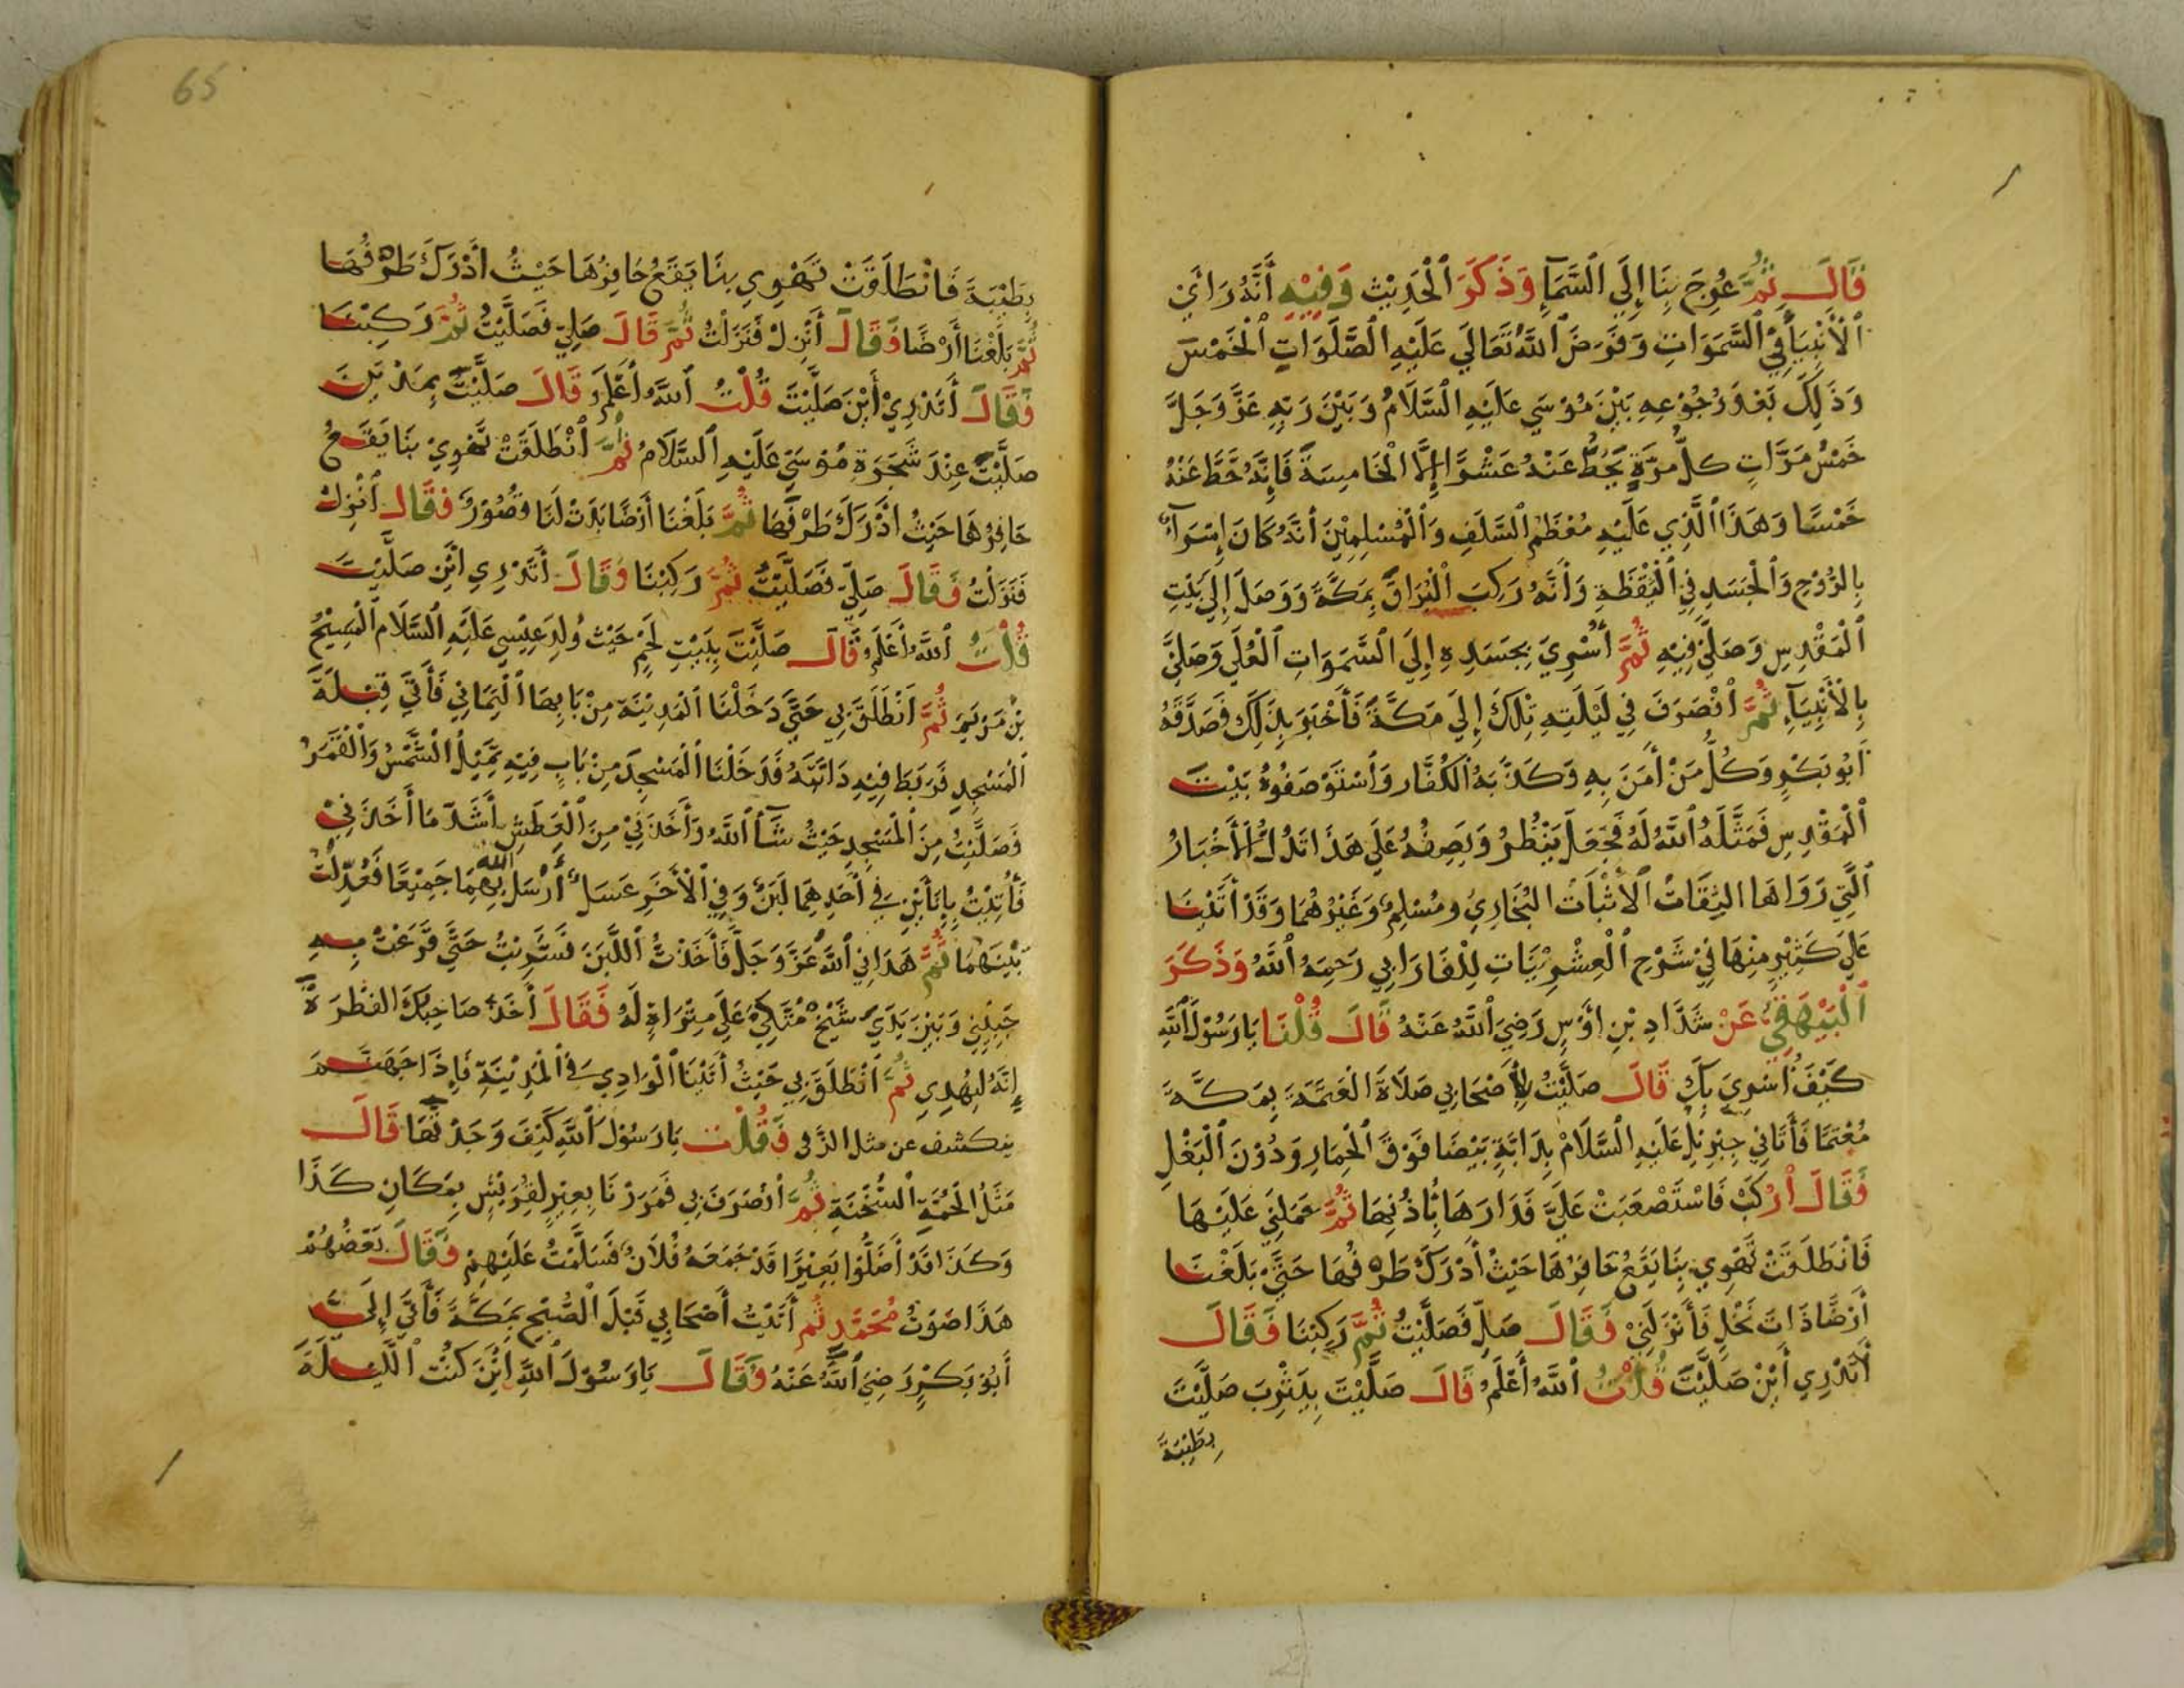 قَالَ ثُمَّ عُرِجَ بِنَا إِلَي السَّمَآءِ وَذَكَرَ الْحَدِيْث وَفِيْهِ أَنَّهُ رَائَ
الْأَنْبِيَآءَ فِي السَّمَوَاتِ وَفَرَضَ اللَّهُ تَعَالَي عَلَيْهِ الصَّلَوَاتِ الْخَمْسَ
وَذَلِكَ بَعْدَ رُجُوْعِهِ بَيْنَ مُوْسَي عَلَيْهِ السَّلَامُ وَبَيْنَ رَبِّهِ عَزَّ وَجَلَّ
خَمْسُ مَرَّاتٍ كلُّ مَرَّةٍ يَحُطُّ عَنْهُ عَشْرًا إِلَّا الْخَامِسَةَ فَإِنَّهُ حَطَّ عَنْهُ
خَمْسًا وَهَذَا الَّذِي عَلَيْهِ مُعْظَمُ السَّلَفِ وَالْمُسْلِمِيْنَ أَنَّهُ كَانَ إِسْرَآءً
بِالرُّوْحِ وَالْجَسَدِ فِي الْيَقْظَةِ وَأَنَّهُ رَكِبَ الْبُرَاقَ بِمَكَّةَ وَوَصَلَ إِلَي بَيْتِ
الْمَقْدِسِ وَصَلَّيَ فِيْهِ ثُمَّ أُسْرِيَ بِجَسَدِهِ إِلَي السَّمَوَاتِ الْعُلَي وَصَلَّيَ
بِالْأَنْبِيَآءِ ثُمَّ انْصَرَفَ فِي لَيْلَتِهِ تِلْكَ إِلَي مَكَّةَ فَأَخْبَرَ بِذَلِكَ فَصَدَّقَهُ
أَبُو بَكْرٍ وَكُلُّ مَنْ أَمَنَ بِهِ وَكَذَّبَهُ الْكُفَّار وَاسْتَوْصَفُوْهُ بَيْتَ
الْمَقْدِسِ فَمَثَّلَهُ اللَّهُ لَهُ فَجَعَلَ يَنْظُرُ وَيَصِفُهُ عَلَي هَذَا تَدُلُّ الْأَخْبَارُ
الَّتِي رَوَاهَا الثِّقَاتُ الْأَثْبَاتُ الْبُخَارِيُ وَمُسْلِمٌ وَغَيْرُهُمَا وَقَدْ أَتَيْنَا
عَلَي كَثِيْرٍ مِنْهَا فِيْ شَرْحِ الْعِشْرِيْنِيَاتِ لِلْفَارَابِي رَحِمَهُ اللَّهُ وَذَكَرَ
الْبَيْهَقِيُّ عَنْ شَدَّادِ بْنِ أَوْسٍ رَضِيَ اللَّهُ عَنْهُ قَالَ قُلْنَا يَا رَسُوْلَ اللَّهِ
كَيْفَ أُسْرِيَ بِكَ قَالَ صَلَّيْتُ لِأَصْحَابِي صَلَاةَ الْعَتَمَةَ بِمَكَّةَ
مُعْتِمًا فَأَتَانِي جِبْرِيْلُ عَلَيْهِ السَّلَامُ بِدَابَّةٍ بَيْضَا فَوْقَ الْحِمَارِ وَدُوْنَ الْبَغْلِ
فَقَالَ ارْكَبْ فَاسْتَصْعَبَتْ عَلَيَّ فَدَارَهَا بِأُذُنِهَا ثُمَّ حَمَلَنِي عَلَيْهَا
فَانْطَلَقَتْ تَهْوِي بِنَا يَقَعُ حَافِرُهَا حَيْثُ أَدْرَكَ طَرْفُهَا حَتَّيَ بَلَغْنَا
أَرْضًا ذَاتَ نَخْلٍ فَأَنْزَلَنِيْ فَقَالَ صَلِّ فَصَلَّيْتُ ثُمَّ رَكِبْنَا فَقَالَ
أَتَدْرِي أَيْنَ صَلَّيْتَ قُلْتُ اللَّهُ أَعْلَمُ قَالَ صَلَّيْتَ بِيَثْرِبَ صَلَّيْتَ
بِطَيْبَةَ
65
بِطَيْبَةَ فَانْطَلَقَتْ تَهْوِي بِنَا يَقَعُ حَافِرُهَا حَيْثُ أَدْرَكَ طَرْفُهَا
ثُمَّ بَلَغْنَا أَرْضًا فَقَالَ أَنْزِلْ فَنَزَلْتُ ثُمَّ قَالَ صَلِّيِ فَصَلَّيْتُ ثُمَّ رَكِبْنَا
فَقَالَ أَتَدْرِيْ أَيْنَ صَلَّيْتَ قُلْتُ اللَّهُ أَعْلَمُ قَالَ صَلَّيْتَ بِمَدْيَنَ
صَلَّيْتَ عِنْدَ شَجَرَةِ مُوْسَيَ عَلَيْهِ السَّلَامُ ثُمَّ انْطَلَقَتْ تَهْوِيْ بِنَا يَقَعُ
حَافِرُهَا حَيْثُ أَدْرَكَ طَرْفُهَا ثُمَّ بَلَغْنَا أَرْضًا بَدَتْ لَنَا قُصُوْرٌ فَقَالَ انْزِلْ
فَنَزَلْتُ فَقَالَ صَلِّيِ فَصَلَّيْتُ ثُمَّ رَكِبْنَا فَقَالَ أَتَدْرِي أَيْنَ صَلَّيْتَ
قُلْتُ اللَّهُ أَعْلَمُ قَالَ صَلَّيْتَ بِبَيْتِ لَحْمٍ حَيْث وُلِدَ عِيْسِي عَلَيْهِ السَّلَام الْمَسِيْحُ
بْنُ مَرْيَمَ ثُمَّ انْطَلَقَ بِي حَتَّيَ دَخَلْنَا الْمَدِيْنَةَ مِنْ بَابِهَا الْيَمَانِي فَأَتَيَ قِبْلَةَ
الْمَسْجِدِ فَرَبَطَ فِيْهِ دَابَّتَهُ فَدَخَلْنَا الْمَسْجِدَ مِنْ بَابٍ فِيْهِ تَمِيْلُ الشَّمْسُ وَالْقَمَرُ
فَصَلَّيْتُ مِنَ الْمَسْجِدِ حَيْثُ شَآءَ اللَّهُ وَأَخَذَنِيْ مِنَ الْعَطَشِ أَشَدّ مَا أَخَذَنِيْ
فَأُتِيْتُ بِإِنَائَيْنِ فِي أَحَدِهِمَا لَبَنٌ وَفِي الْأَخَرِ عَسَلٌ أَرْسَلَ اللَّه بِهِمَا جَمِيْعًا فَعَدَّلْتُ
بَيْنَهُمَا ثُمَّ هَدَانِي اللَّهُ عَزَّ وَجَلَّ فَأَخَذْتُ اللَّبَنَ فَشَرِبْتُ حَتَّيَ قَرَعْتُ بِهِ
جَبِيْنِي وَبَيْنَ يَدَيَّ شَيْخٌ مُتَّكِئٌ عَلَي مِثْرَاةٍ لَهُ فَقَالَ أَخَذَ صَاحِبُكَ الفِطْرَةَ
إِنَّهُ لَيُهْدِي ثُمَّ انْطَلَقَ بِي حَيْثُ أَتَيْنَا الْوَادِي فِي الْمَدِيْنَةِ فَإِذَا جَهَنَّمَ
يَنكَشف عن مثل الزَّ فَقُلْت يَا رَسُوْلَ اللَّهِ كَيْفَ وَجَدْتَهَا قَالَ
مَثَلُ الْحُمَّةِ السُّخْنَةِ ثُمَّ انْصَرَفَ بِي فَمَرَرْنَا بِعِيْرٍ لِقُرَيْشٍ بِمَكَانِ كَذَا
وَكَذَا قَدْ أَضَلُّوا بَعِيْرًا قَدْ جَمَعَهُ فُلَانٌ فَسَلَّمْتُ عَلَيْهِمْ فَقَالَ بَعْضُهُمْ
هَذَا صَوْتُ مُحَمَّدٍ ثُمَّ أَتَيْتُ أَصْحَابِي قَبْلَ الصُّبْحِ بِمَكَّةَ فَأَتَيَ إِلَيَّ
أَبُوْ بَكْرٍ رَضِيَ اللَّهُ عَنْهُ وَقَالَ يَا رَسُوْلَ اللَّهِ أَيْنَ كُنْتَ اللَّيْلَةَ